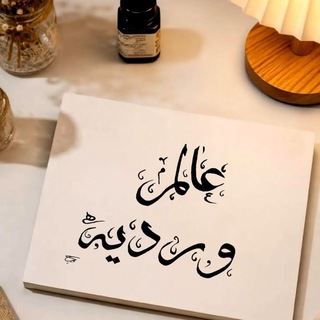 عالم
ورديه